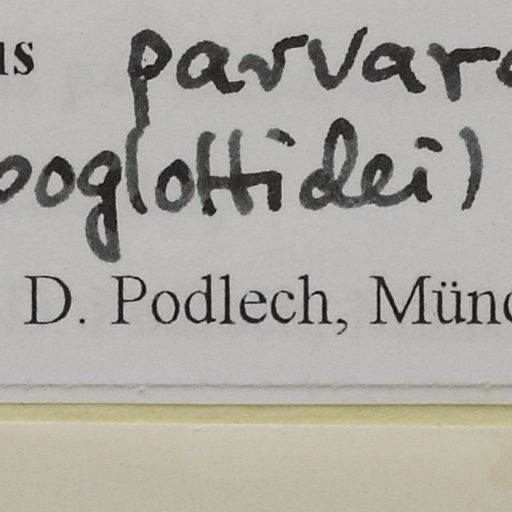 us parvaro
ooglottidei)
D. Podlech, Münc